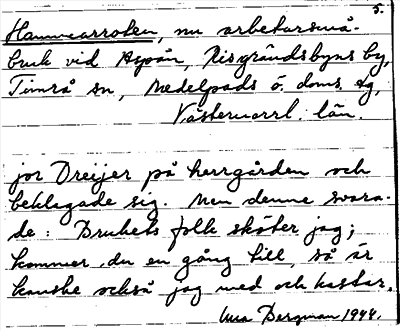 5.
Hammarroten, nu arbetarsmå-
bruk vid Aspån, Risgrändsbyns by,
Timrå sn, Medelpads ö. doms. ag,
Västernorrl. län.
jor Dreijer på herrgården och
beklagade sig. Men denne svara-
de: Brukets folk sköter jag;
kommer du en gång till, så är
kanske också jag med och kastar.
Bergman 1944.